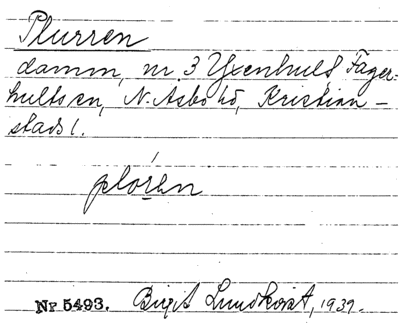 Plurren
damm, nr 3 Yxenhult, Fager-
hults sn, N. Åsbo hd, Kristian-
stads l.
Nr 5493. Birgit Lundkvist, 1937.